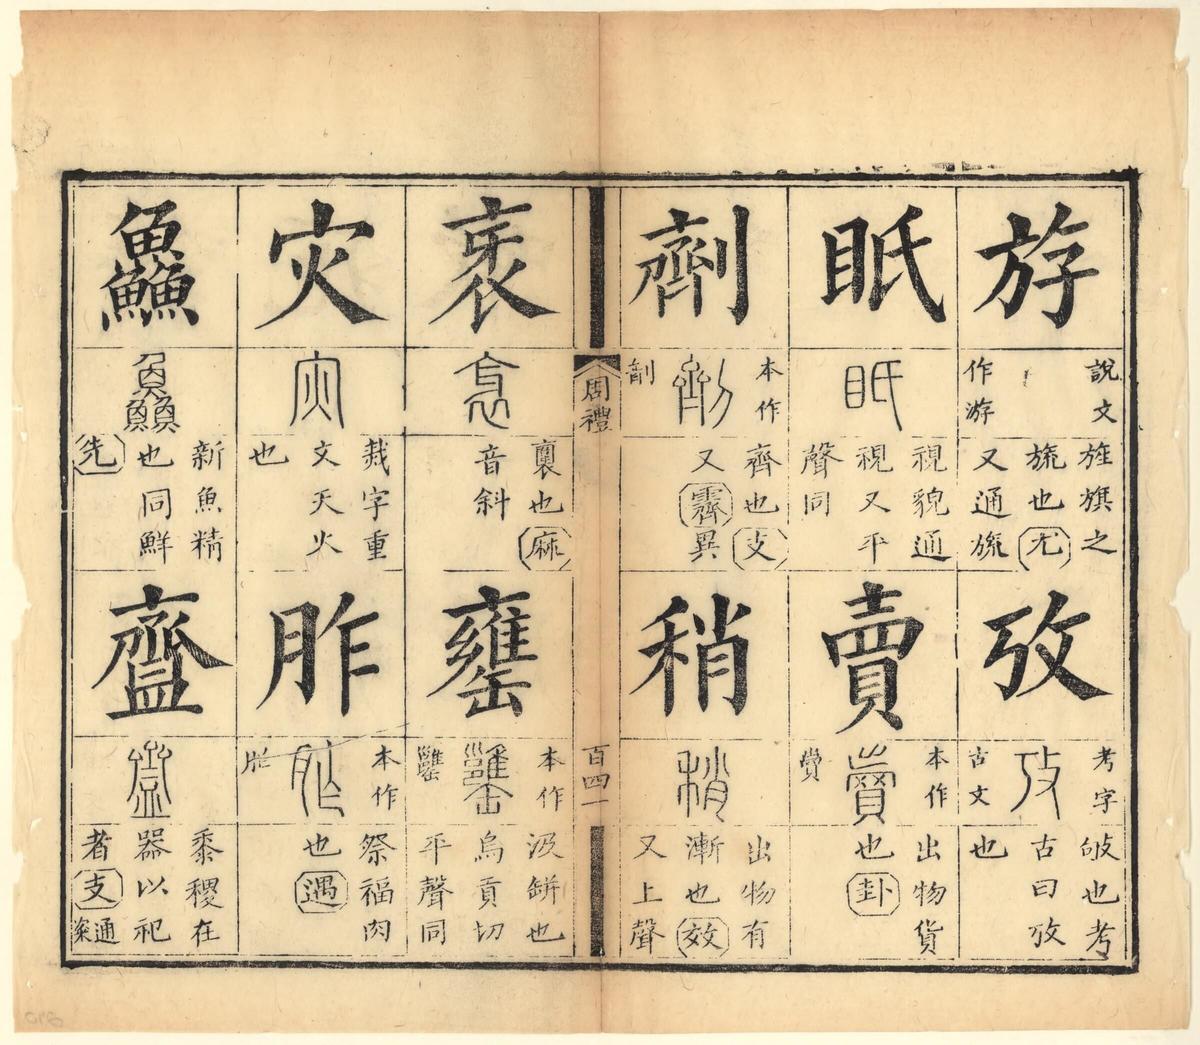 斿
說文
作游
旌旗之
旒也尤
又通旒
攷
考字
古文
敂也考
古曰攷
也
眂
視貌通
視又平
聲同
賣
本作
賣
出物貨
也卦
劑
本作
劑
齊也支
又霽異
稍
出物有
漸也效
又上聲
周禮
百四一
衺
裏也麻
音斜
罋
本作
汲缾也
烏貢切
平聲同
灾
烖字重
文天火
也
胙
本作
祭福肉
也遇
鱻
新魚精
也同鮮
先
齍
黍稷在
器以祀
者支
通粢